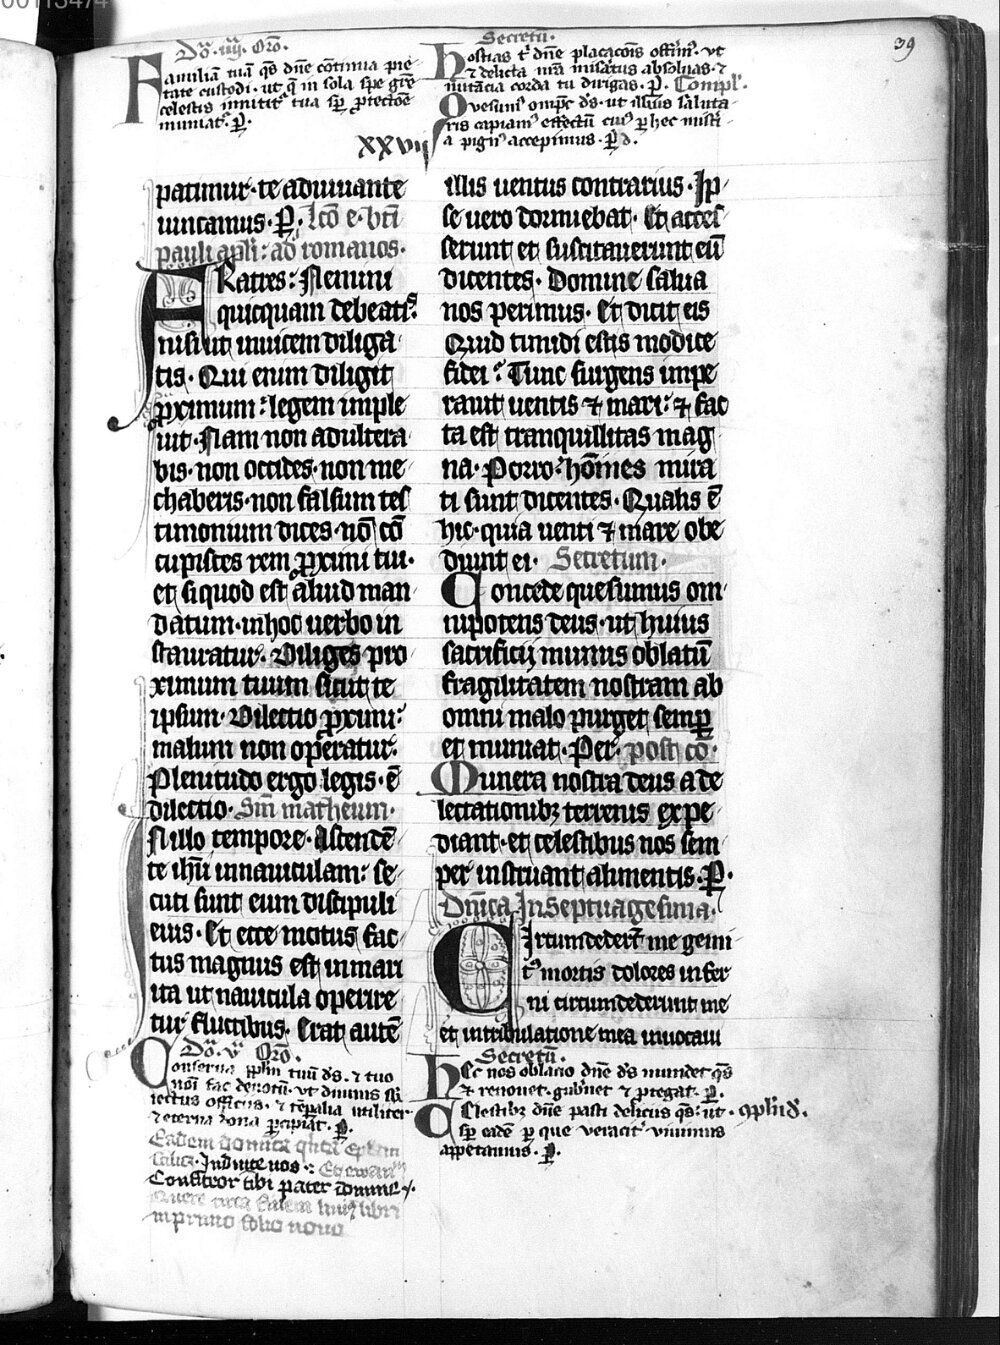 00113474
39
Dō. iiij. Orō.
Familiā tuā qs dn̄e cōtinua pie-
tate custodi. ut q̄ in sola spe grē
celestis innitit᷑ tua sp̄ ꝓtectōe
muniat᷑. P̲.
Secretū.
hostias t᷑ dn̄e placacōis offim᷒. vt
⁊ delicta nr̄a misat᷒us absoluas. ⁊
nutācia corda tu dirigas. P̲. Compl᷑.
Qvesum᷒ omp̄c ds̄. ut illius saluta-
ris capiam᷒ effectū cui᷒ ꝑ hec misti-
a pign᷒ accepimus. P̲ d.
xxvij
patimur. te adiuuante
uincamus. P̲. lcō e. bt̄i
pauli apl̄i: ad romanos.
FRatres: Nemini
quicquam debeatis:
nisi ut inuicem diliga-
tis. Qui enim diligit
ꝓximum: legem imple-
uit. Nam non adultera-
bis. non occides. non me-
chaberis. non falsum tes-
timonium dices. nō cō-
cupisces rem ꝓximi tui.
et siquod est aliud man-
datum. in hoc uerbo in-
stauratur. Diliges pro-
ximum tuum sicut te
ipsum. Dilectio ꝓximi:
malum non operatur.
Plenitudo ergo legis. ē
dilectio. Sm̄ matheum.
INillo tempore. Ascendē-
te ihū in nauiculam: se-
cuti sunt eum discipuli
eius. Et ecce motus fac-
tus magnus est in mari
ita ut nauicula operire-
tur fluctibus. Erat autē
illis uentus contrarius. Ip-
se uero dormiebat. Et acces-
serunt et suscitauerunt eū
dicentes. Domine salua
nos perimus. Et dicit eis
Quid timidi estis modice
fidei? Tunc surgens impe-
rauit uentis ⁊ mari: ⁊ fac-
ta est tranquillitas mag-
na. Porro: hōmies mira-
ti sunt dicentes. Qualis ē
hic. quia uenti ⁊ mare obe-
diunt ei. Secretum.
Concede quesumus om-
nipotens deus. ut huius
sacrificij munus oblatū
fragilitatem nostram ab
omni malo purget semꝑ
et muniat. Per. post cō.
Munera nostra deus a de-
lectationibꝫ terrenis expe-
diant. et celestibus nos sem-
per instruant alimentis. P̲.
Dn̄ica In Septuagesima.
Circumdeder̄t me gemi-
t᷒ mortis dolores infer-
ni circumdederunt me
et in tribulatione mea inuocaui
Dō. v Orō.
Conserua ppl̄m tuū ds̄. ⁊ tuo
noī fac deuotū. vt diuinis sb̄-
iectus officiis. ⁊ tēꝑalia uiriliter
⁊ eterna dona ꝑcipiat. P̲.
Eadem domica
Induite vos.
Confiteor tibi pater domine
in primo folio nouo
Secretū.
hEc nos oblacio dn̄e ds̄ mundet qs̄
⁊ renouet. gub̄net ⁊ ꝓtegat. P̲.
Celestibꝫ dn̄e pasti delicijs qs: ut.
sp̄ eadē ꝑ que veracit᷑ viuimus
appetamus. P̲.